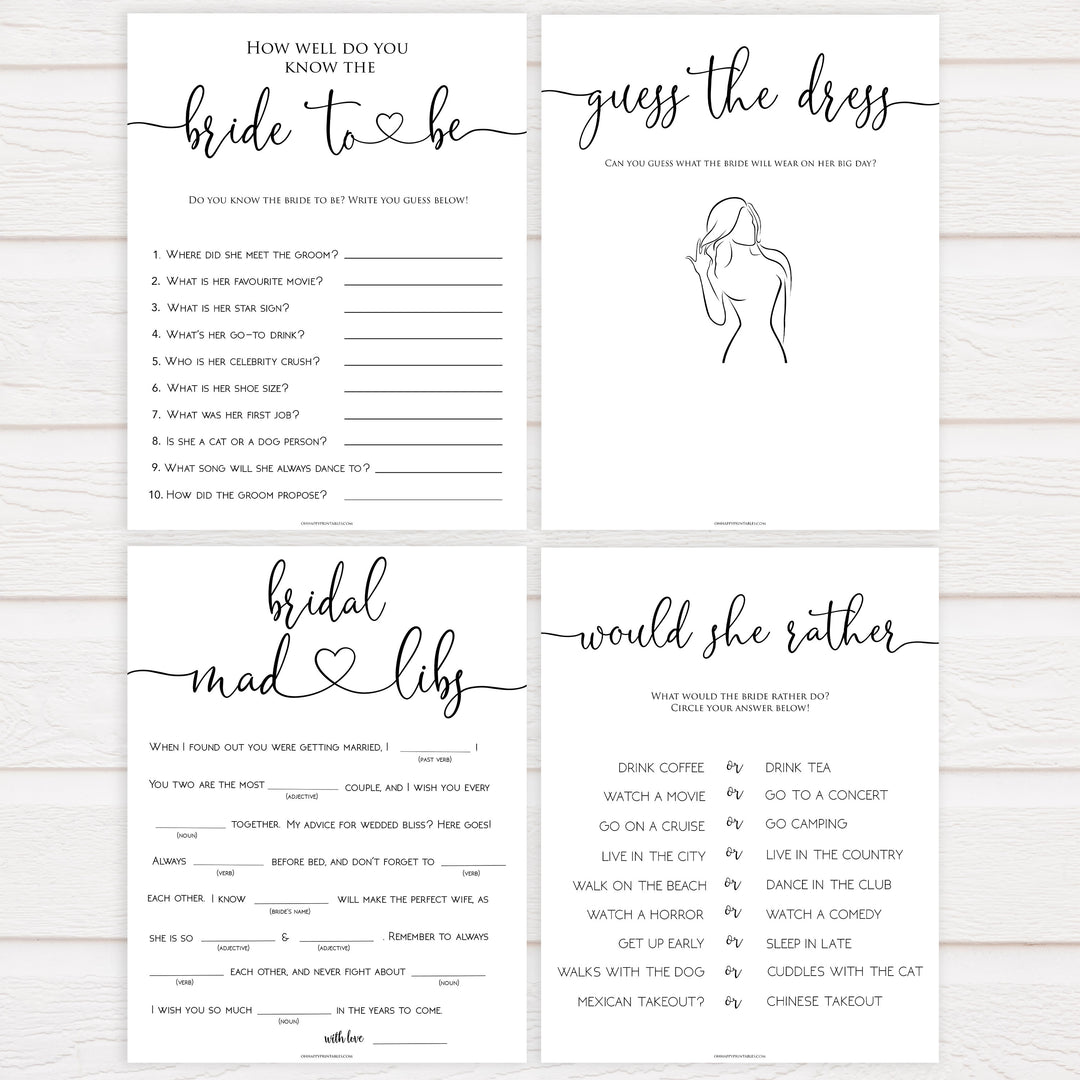 How well do you
know the
bride to be
Do you know the bride to be? Write you guess below!
1. Where did she meet the groom?
2. What is her favourite movie?
3. What is her star sign?
4. What's her go-to drink?
5. Who is her celebrity crush?
6. What is her shoe size?
7. What was her first job?
8. Is she a cat or a dog person?
9. What song will she always dance to?
10. How did the groom propose?
OHHAPPYPRINTABLES.COM
guess the dress
Can you guess what the bride will wear on her big day?
OHHAPPYPRINTABLES.COM
bridal
mad libs
When I found out you were getting married, I ____ !
(past verb)
You two are the most ____ couple, and I wish you every
(adjective)
____ together. My advice for wedded bliss? Here goes!
(noun)
Always ____ before bed, and don't forget to ____
(verb) (verb)
each other. I know ____ will make the perfect wife, as
(bride's name)
she is so ____ & ____ . Remember to always
(adjective) (adjective)
____ each other, and never fight about ____
(verb) (noun)
I wish you so much ____ in the years to come.
(noun)
with love ____
OHHAPPYPRINTABLES.COM
would she rather
What would the bride rather do?
Circle your answer below!
DRINK COFFEE or DRINK TEA
WATCH A MOVIE or GO TO A CONCERT
GO ON A CRUISE or GO CAMPING
LIVE IN THE CITY or LIVE IN THE COUNTRY
WALK ON THE BEACH or DANCE IN THE CLUB
WATCH A HORROR or WATCH A COMEDY
GET UP EARLY or SLEEP IN LATE
WALKS WITH THE DOG or CUDDLES WITH THE CAT
MEXICAN TAKEOUT? or CHINESE TAKEOUT
OHHAPPYPRINTABLES.COM